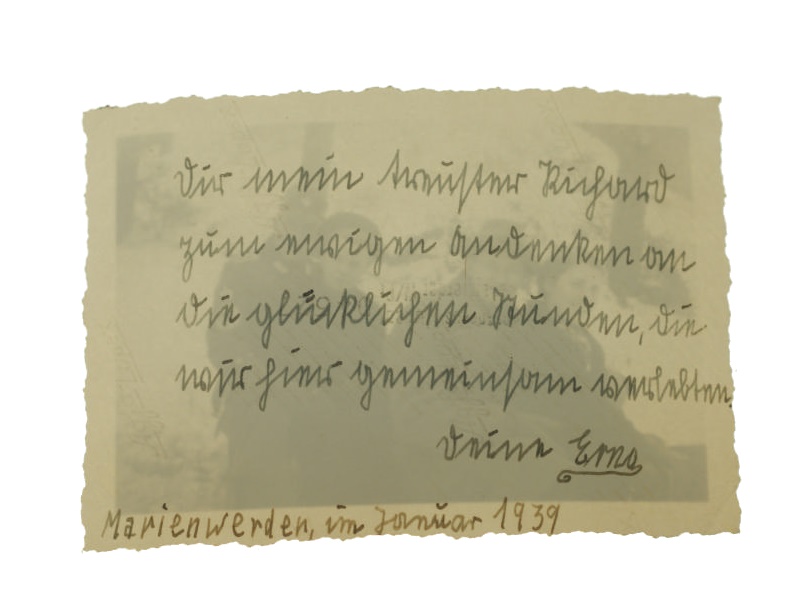 Dir mein treuster Richard
zum ewigen Andenken an
die glücklichen Stunden, die
wir hier gemeinsam verlebten.
Deine Erna
Marienwerder, im Januar 1939